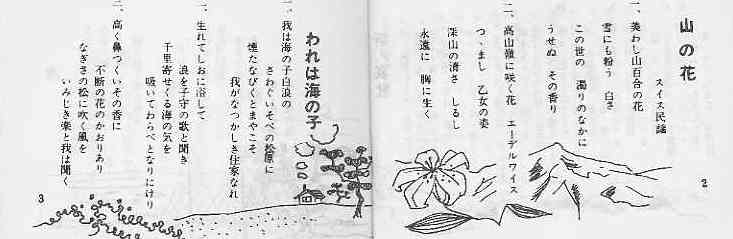 山の花
スイス民謡
一、美わし山百合の花
雪にも粉う 白さ
この世の 濁りのなかに
うせぬ その香り
二、高山嶺に咲く花 エーデルワイス
つゝまし 乙女の姿
深山の清さ しるし
永遠に 胸に生く
2
われは海の子
一、我は海の子白浪の
さわぐいそべの松原に
煙たなびくとまやこそ
我がなつかしき住家なれ
二、生れてしおに浴して
浪を子守の歌と聞き
千里寄せくる海の気を
吸いてわらべとなりにけり
三、高く鼻つくいその香に
不断の花のかおりあり
なぎさの松に吹く風を
いみじき楽と我は聞く
3